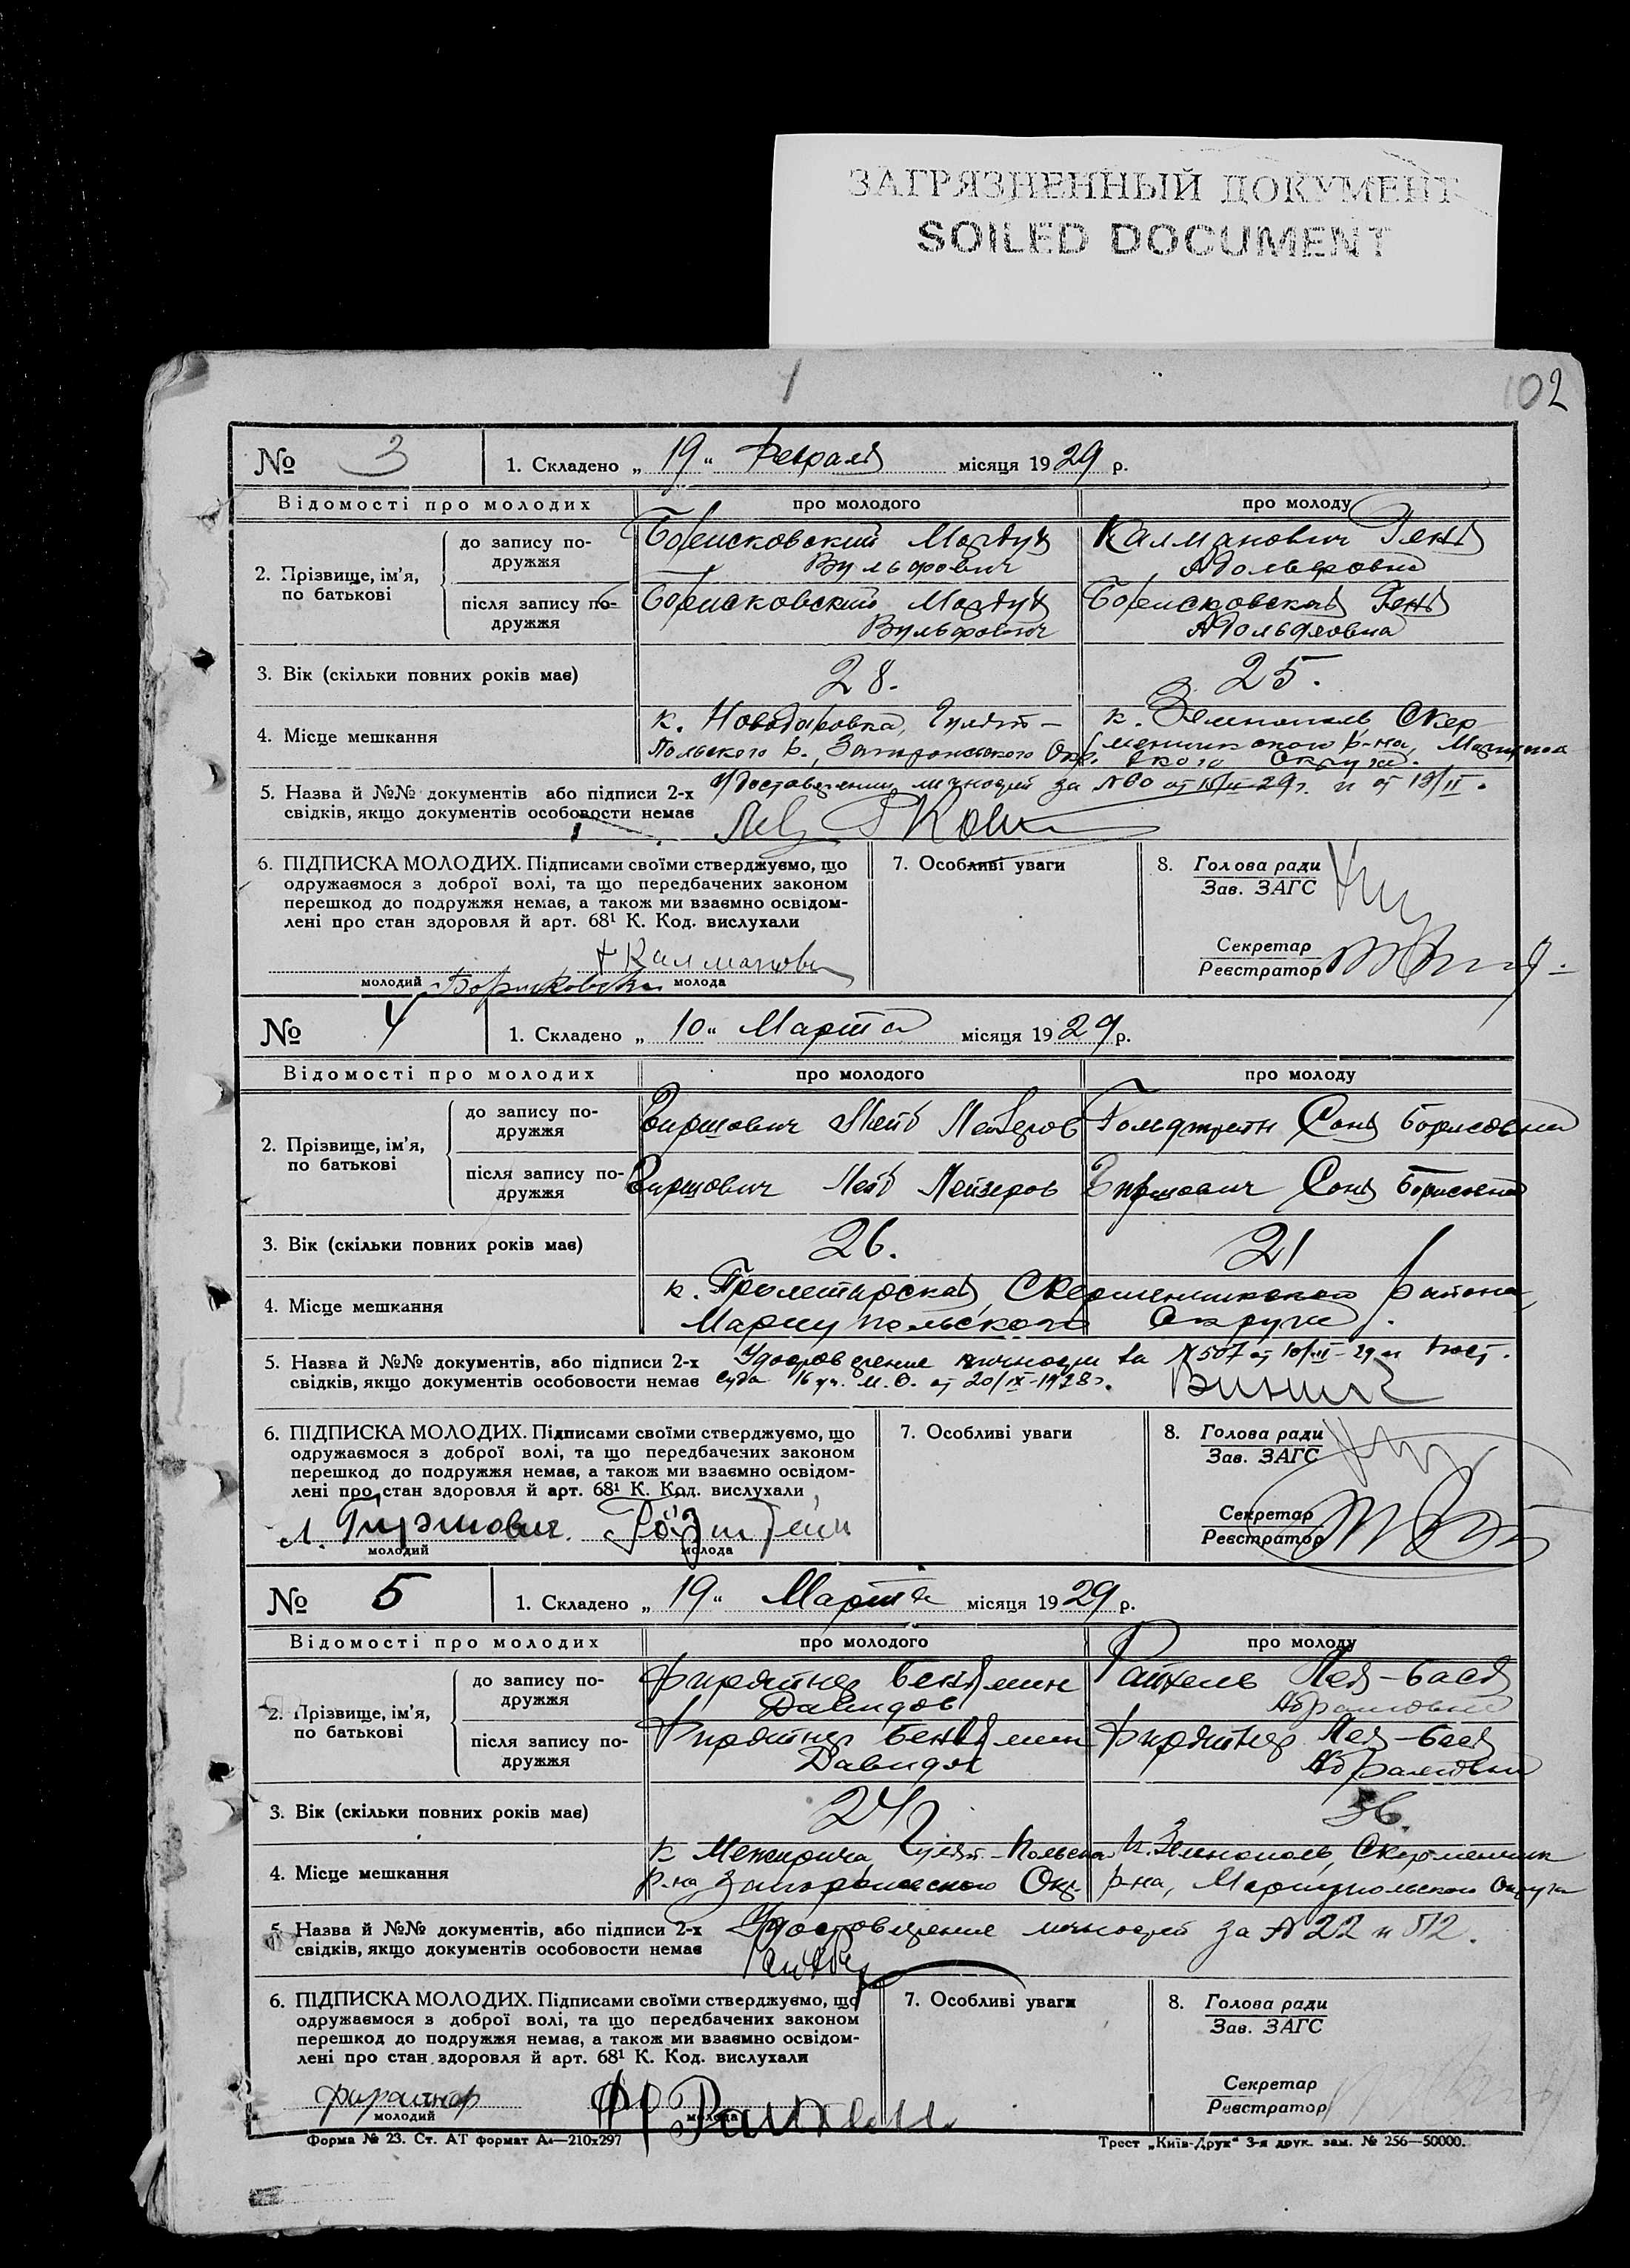 ЗАГРЯЗНЕННЫЙ ДОКУМЕНТ
SOILED DOCUMENT
102
№ 3
1. Складено „ 19 “ Февраля місяця 1929 р.
Відомості про молодих
про молодого
про молоду
2. Прізвище, ім'я, по батькові
до запису подружжя
Борисковский
Вульфович
Калманович Геня
Адольфовна
після запису по-
дружжя
Борисковский
Вульфович
Борисковская Геня
Адольфовна
3. Вік (скільки повних років має)
28.
25.
4. Місце мешкання
к. Новодаровка, Гуляй-
Польского р., Запорожского Окр.
к. Зеленополь Скер
меникского р-на, Мариуполь
ского Округа.
5. Назва й №№ документів або підписи 2-х
свідків, якщо документів особовости немає
6. ПІДПИСКА МОЛОДИХ. Підписами своїми стверджуємо, що
одружаємося з доброї волі, та що передбачених законом
перешкод до подружжя немає, а також ми взаємно освідом-
лені про стан здоровля й арт. 68¹ К. Код. вислухали
Калманович
молодий Борисковский молода
7. Особливі уваги
8. Голова ради
Зав. ЗАГС
Секретар
Реєстратор
№ 4
1. Складено „ 10 “ Марта місяця 1929 р.
Відомості про молодих
про молодого
про молоду
2. Прізвище, ім'я,
по батькові
до запису по-
дружжя
Гиршович Лейб Лейзеров
Гольдштейн Соня Борисовна
після запису по-
дружжя
Гиршович Лейб Лейзеров
Гиршович Соня Борисовна
3. Вік (скільки повних років має)
26.
21
4. Місце мешкання
к. Пролетарская, Скерменикского района,
Мариупольского Округа.
5. Назва й №№ документів, або підписи 2-х
свідків, якщо документів особовости немає
Удостоверение личности за № 507 от 10/III-29 и
суда 16 уч. М. О. от 20/IX-1928 г.
6. ПІДПИСКА МОЛОДИХ. Підписами своїми стверджуємо, що
одружаємося з доброї волі, та що передбачених законом
перешкод до подружжя немає, а також ми взаємно освідом-
лені про стан здоровля й арт. 68¹ К. Код. вислухали
Л. Гиршович.
молодий
молода
7. Особливі уваги
8. Голова ради
Зав. ЗАГС
Секретар
Реєстратор
№ 5
1. Складено „ 19 “ Марта місяця 1929 р.
Відомості про молодих
про молодого
про молоду
2. Прізвище, ім'я,
по батькові
до запису по-
дружжя
Бенямин
Давидов
Райхель Лея-Бася
Абрамовна
після запису по-
дружжя
Бенямин
Давидов
Лея-Бася
Абрамовна
3. Вік (скільки повних років має)
24
36.
4. Місце мешкання
к Межирича, Гуляй-Польского
р-на Запорожского Окр
к. Зеленополь, Скерменик
р-на, Мариупольского Округа
5. Назва й №№ документів, або підписи 2-х
свідків, якщо документів особовости немає
Удостоверение личностей за № 22 и 512.
6. ПІДПИСКА МОЛОДИХ. Підписами своїми стверджуємо, що
одружаємося з доброї волі, та що передбачених законом
перешкод до подружжя немає, а також ми взаємно освідом-
лені про стан здоровля й арт. 68¹ К. Код. вислухали
молодий
молода
7. Особливі уваги
8. Голова ради
Зав. ЗАГС
Секретар
Реєстратор
Форма № 23. Ст. АТ формат А4—210х297
Трест „Київ-Друк“ 3-я друк. зам. № 256—50000.